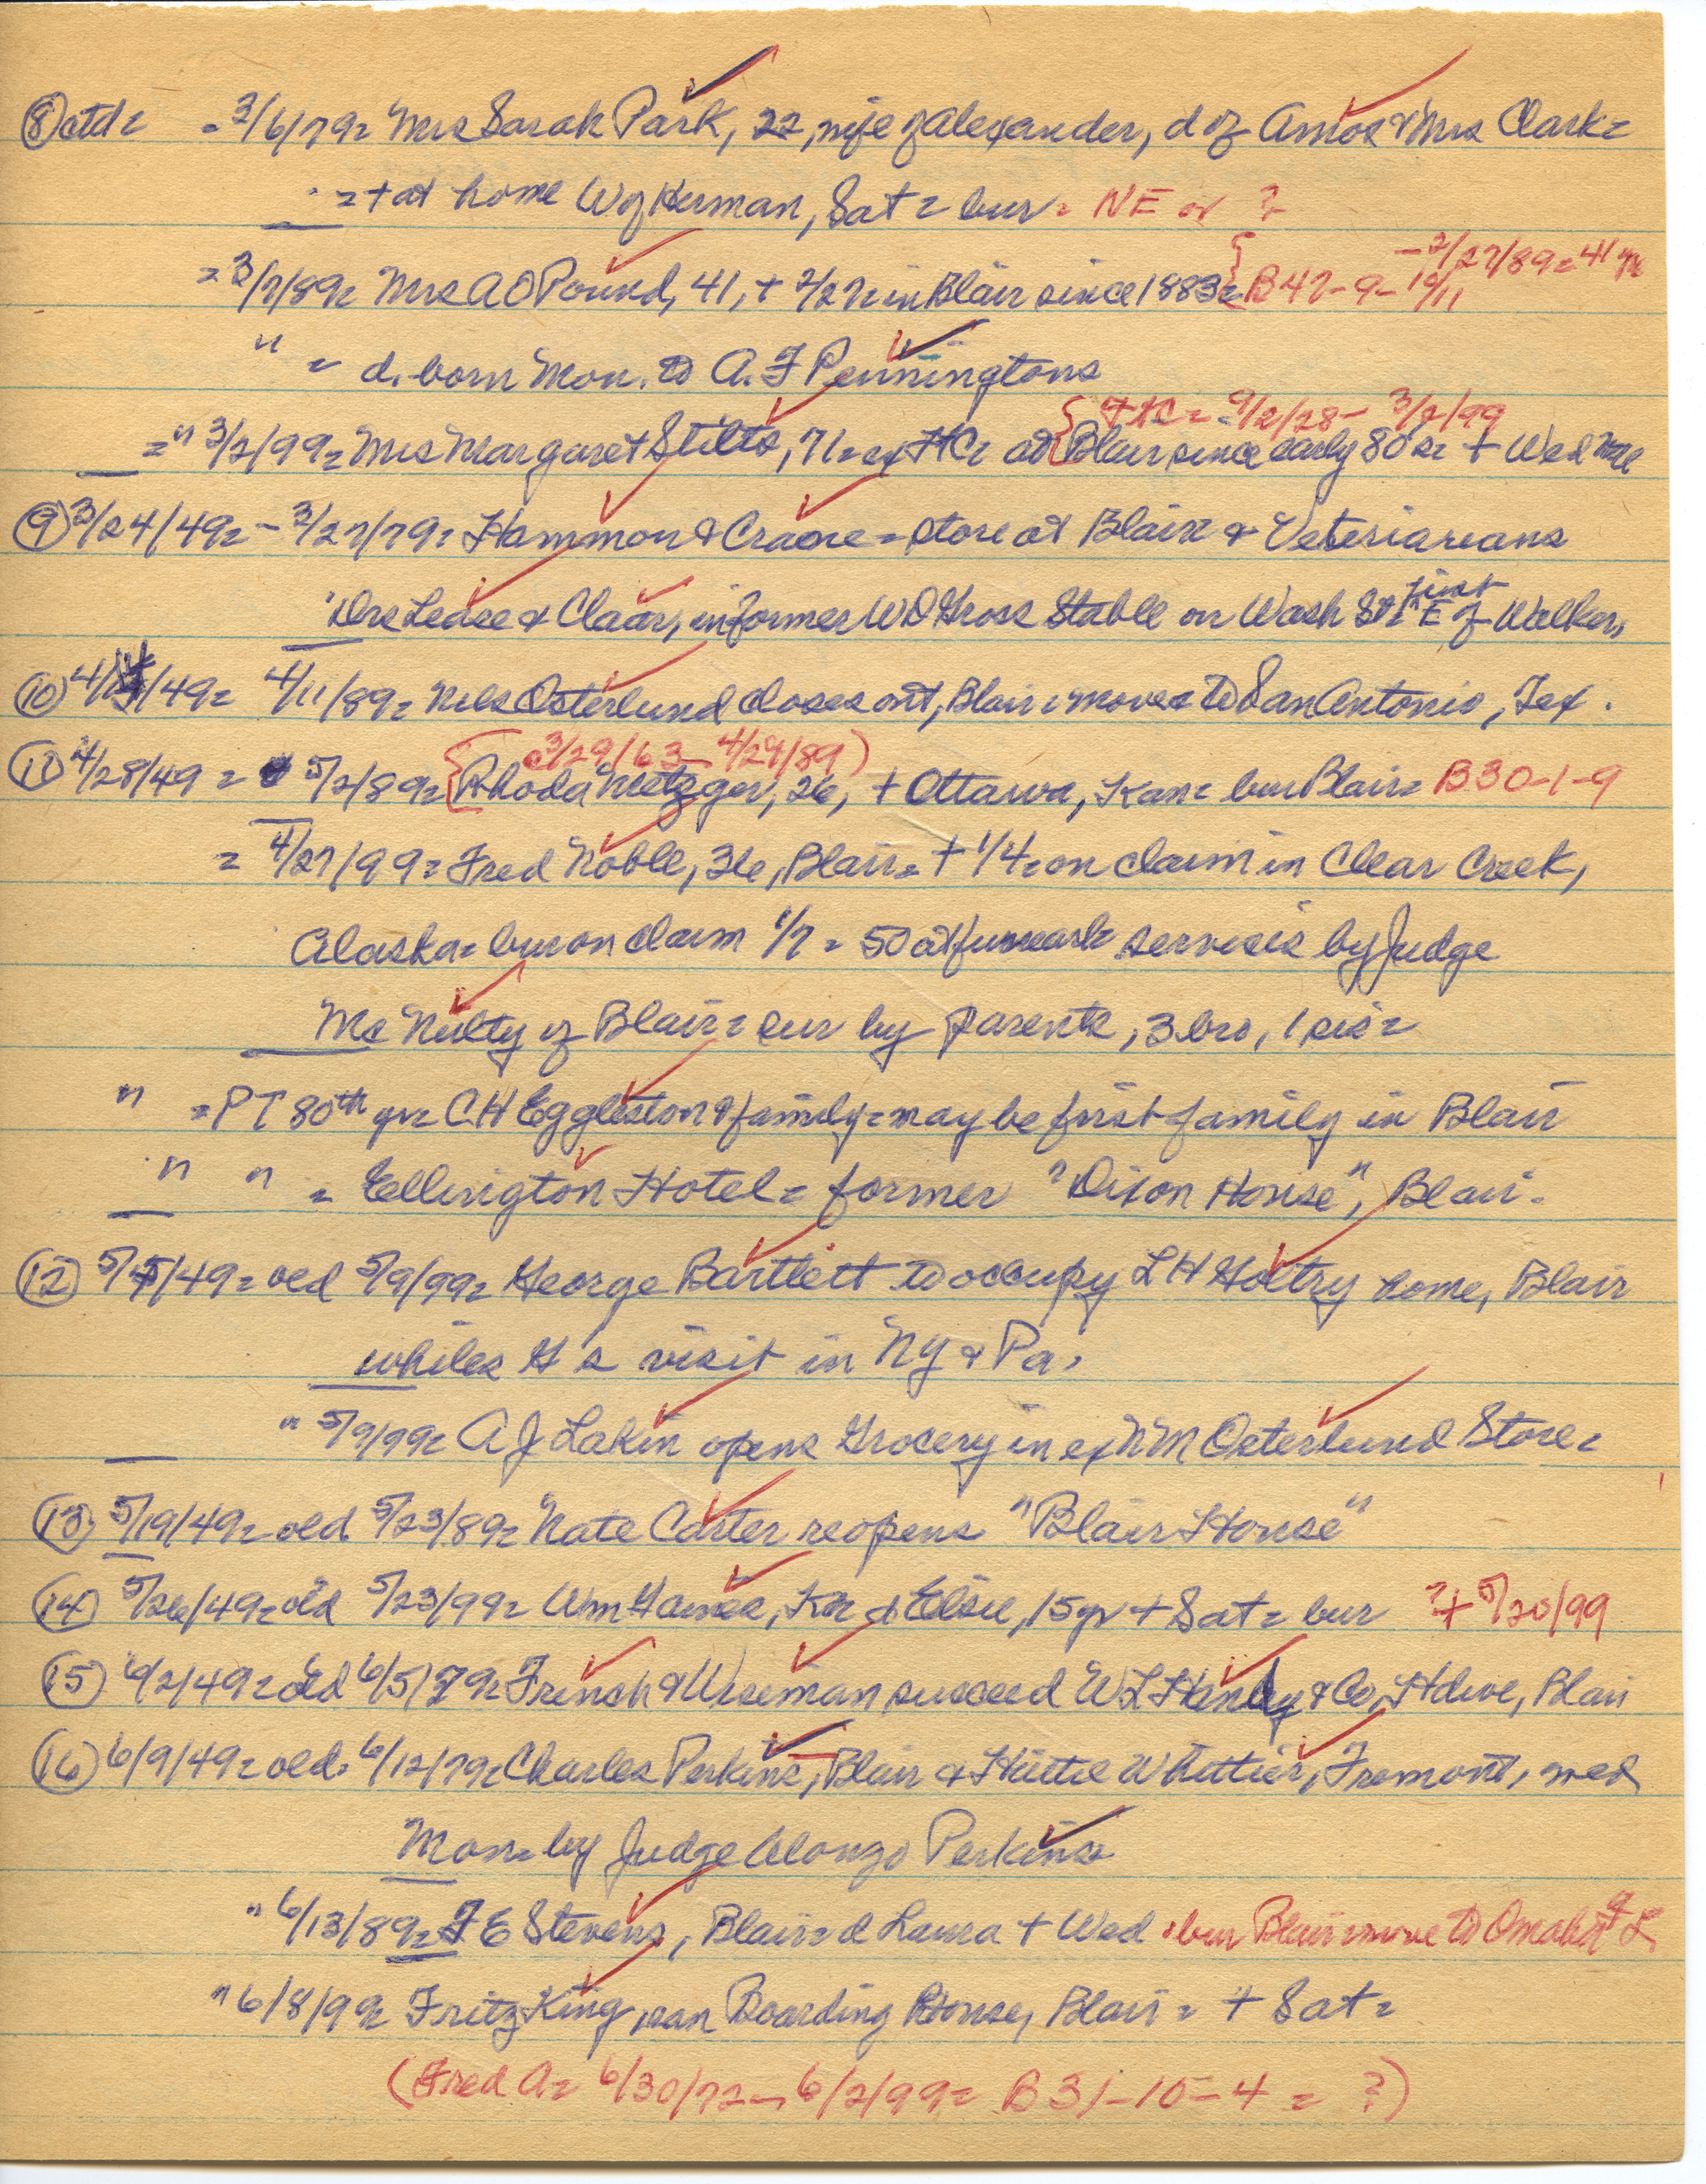 ⑧ ctd = = 3/6/79 = Mrs Sarah Park, 22, wife of Alexander, d of Amos & Mrs Clark =
= + at home W of Herman, Sat = bur = NE or ?
- 2/27/89 = 41 yr
= 3/7/89 = Mrs A O Pound, 41, + 2/27 in Blair since 1883 = { B 47-9-10/11
" = d. born Mon. to A. F Penningtons
9/2/28 - 3/2/99
= " 3/2/99 = Mrs Margaret Stilts, 71 = ex HC = at Blair since early 80s = + Wed
⑨ 3/24/49 = - 3/27/79 = Hammon & Crane = store at Blair & Veterianeans
Drs Lease & Claar, in former W D Gross Stable on Wash St = just E of Walker,
⑩ 4/14/49 = 4/11/89 = Nels Osterlund closes out, Blair = moves to San Antonio, Tex.
3/29/63 - 4/24/89)
⑪ 4/28/49 = 5/2/89 = { Rhoda Metzger, 26, + Ottawa, Kan = bur Blair = B30-1-9
= 4/27/99 = Fred Noble, 36, Blair = + 1/4 = on claim in Clear Creek,
Alaska = bur on claim 1/7 = 50 at funeark = servises by Judge
McNulty of Blair = sur by parents, 3 bro, 1 sis =
" = PT 80th yr = C H Eggleston & family = may be first family in Blair
" " = Ellington Hotel = former "Dixon House", Blair -
⑫ 5/5/49 = old 5/9/99 = George Bartlett to occupy L H Goltry home, Blair
whiles G's visit in NY & Pa.
" 5/9/99 = A J Lakin opens Grocery in ex N M Osterlund Store =
⑬ 5/19/49 = old 5/23/89 = Nate Carter reopens "Blair House"
⑭ 5/26/49 = old 5/23/99 = Wm Gaines, Kn = d Elsie, 15 yr + Sat = bur ? + 5/20/99
⑮ 6/2/49 = old 6/5/79 = French & Wiseman succeed W L Henby & Co, Hdwe, Blair
⑯ 6/9/49 = old = 6/12/79 = Charles Perkins, Blair & Hattie Whittier, Fremont, med
Mon = by Judge Alonzo Perkins
" 6/13/89 = F E Stevens, Blair = d Laura + Wed = bur Blair = move to Omaha
" 6/8/99 = Fritz King, ran Boarding House, Blair = + Sat =
(Fred A = 6/30/72 - 6/2/99 = B31-10-4 = ?)